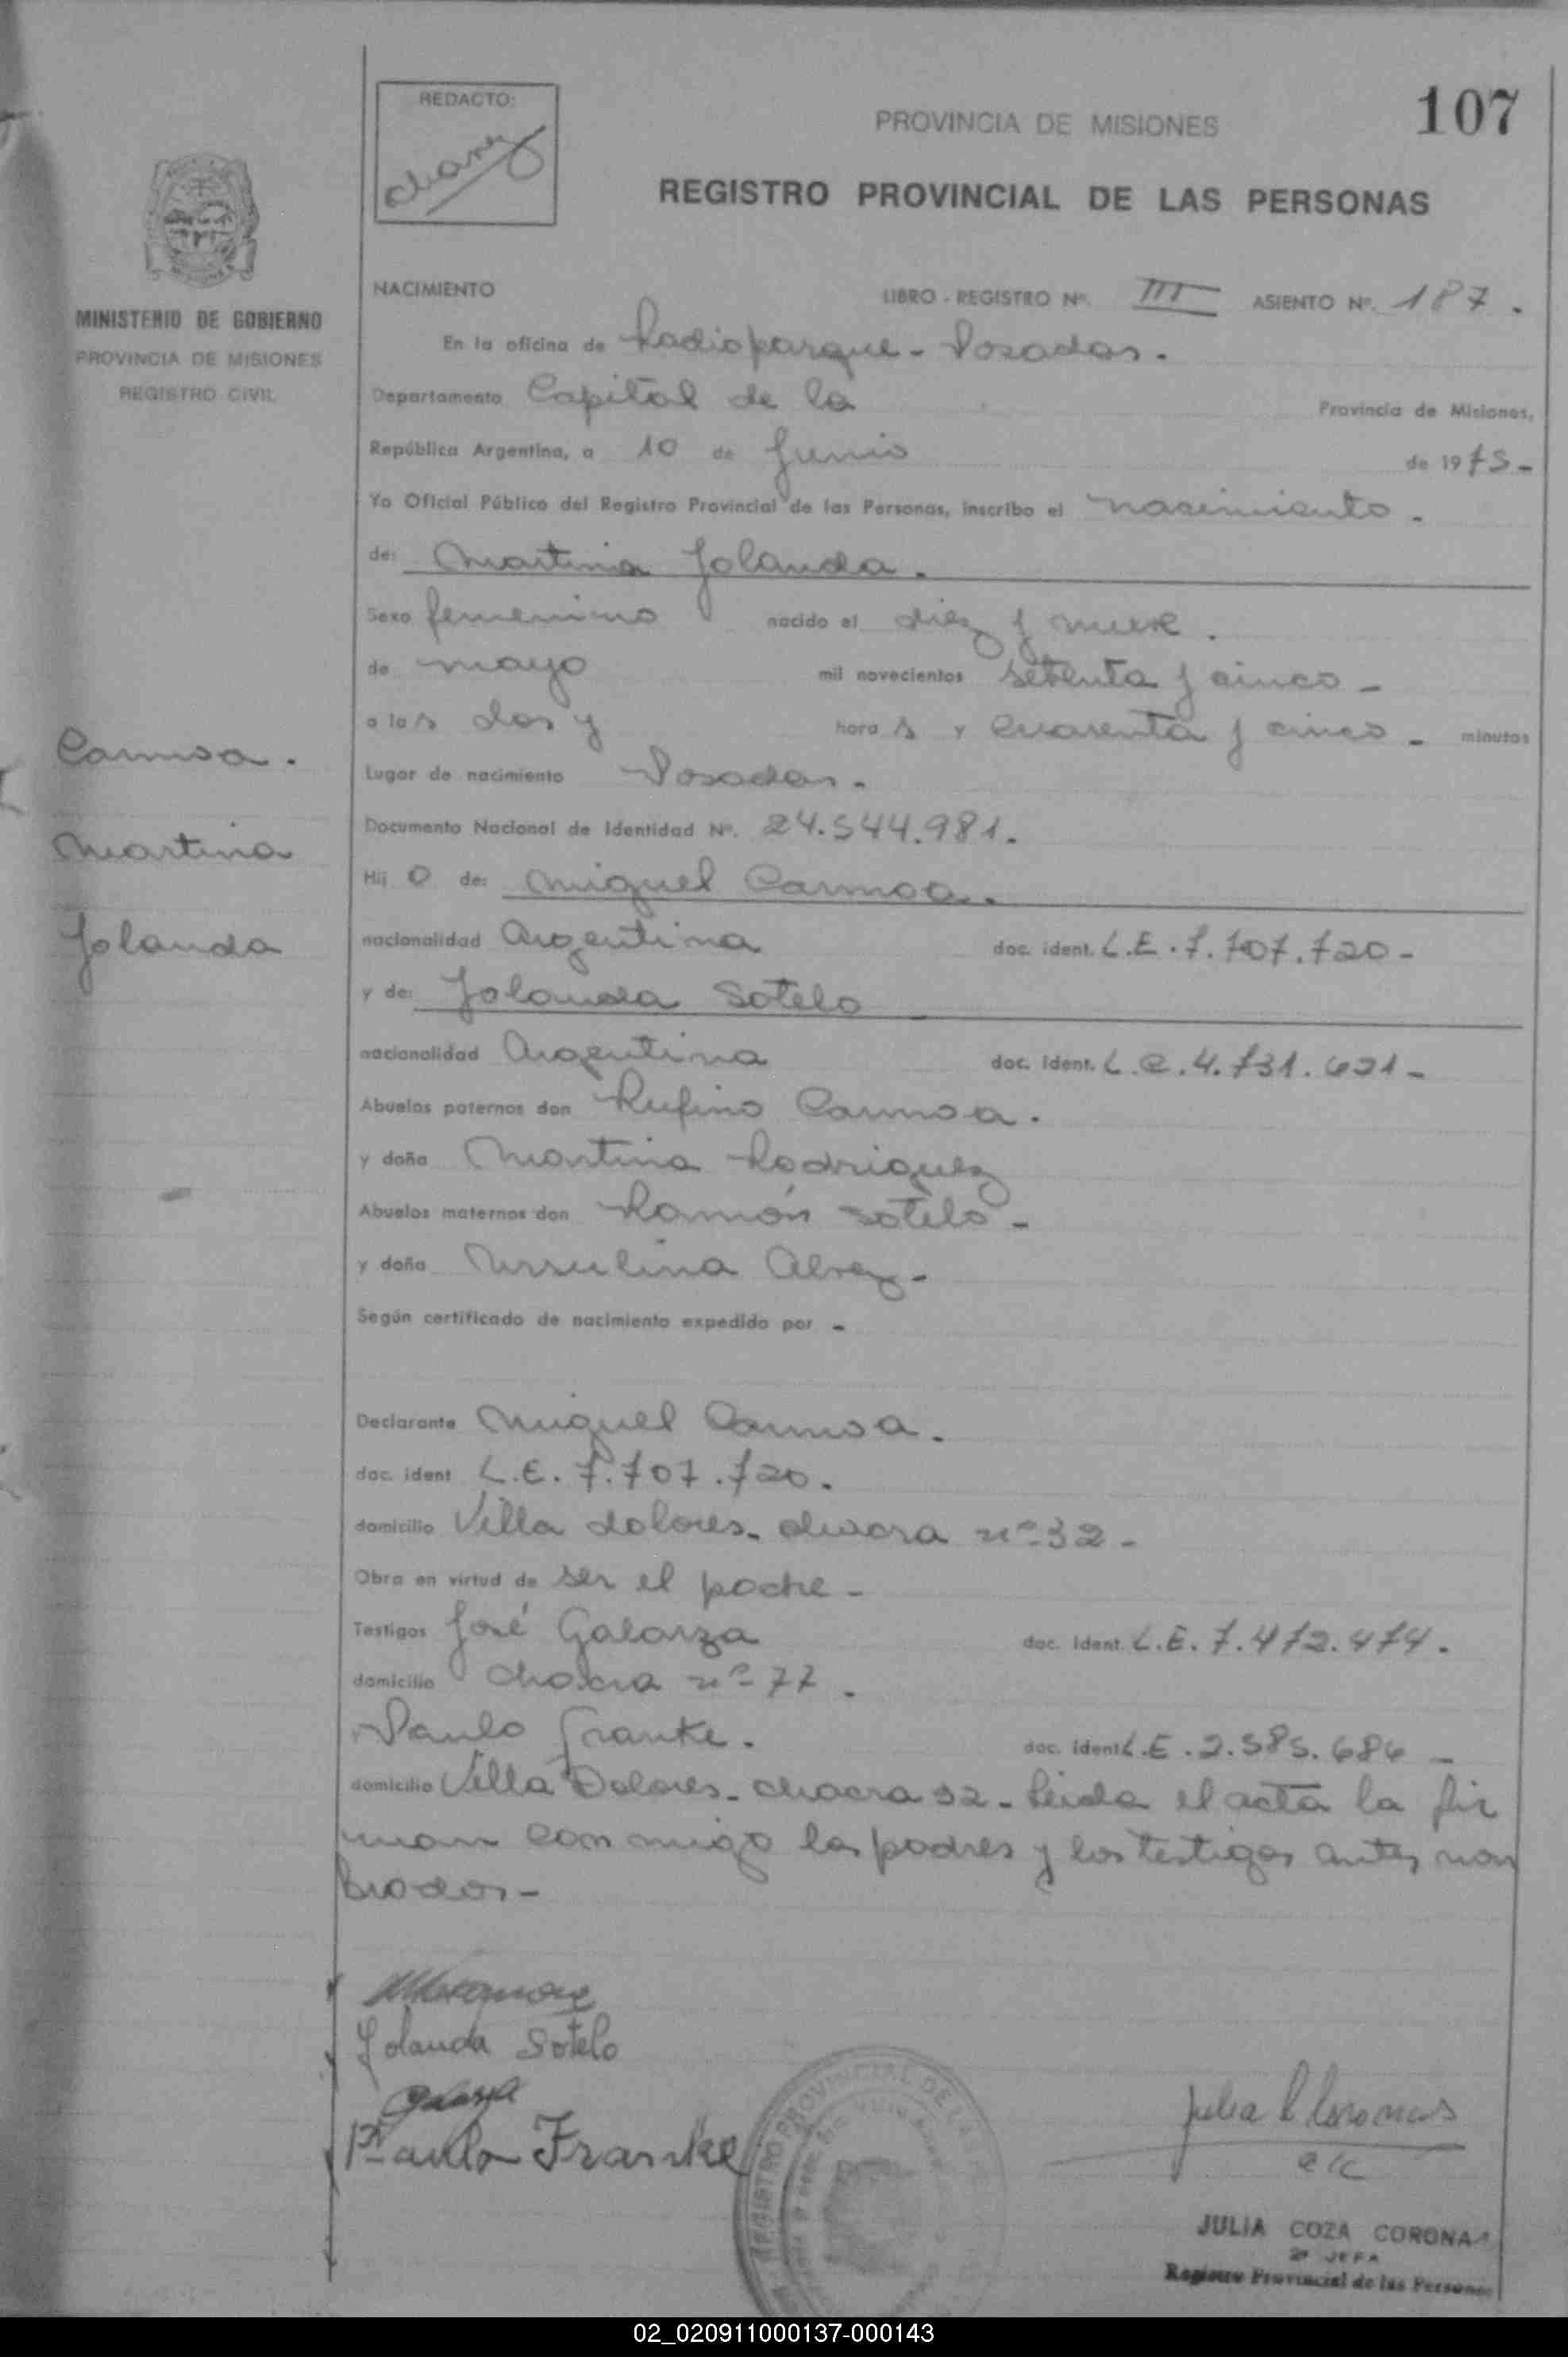 REDACTO:
PROVINCIA DE MISIONES
107
REGISTRO PROVINCIAL DE LAS PERSONAS
MINISTERIO DE GOBIERNO
PROVINCIA DE MISIONES
REGISTRO CIVIL
NACIMIENTO LIBRO - REGISTRO Nº. III ASIENTO Nº. 187.
En la oficina de Radioparque - Posadas.
Departamento Capital de la Provincia de Misiones,
República Argentina, a 10 de Junio de 1975-
Yo Oficial Público del Registro Provincial de las Personas, inscribo el nacimiento.
de: Martina Jolanda.
Sexo femenino nacido el diez y nueve.
de mayo mil novecientos setenta y cinco-
a las dos y horas y cuarenta y cinco- minutos
Lugar de nacimiento Posadas.
Documento Nacional de Identidad Nº. 24.544.981.
Martina
Jolanda
Hij o de: Miguel
nacionalidad Argentina doc. ident. L.E. 7.707.720-
y de: Jolanda Sotelo
nacionalidad Argentina doc. ident. L.C. 4.731.621-
Abuelos paternos don Rufino
y doña Martina Rodriguez
Abuelos maternos don Ramón Sotelo-
y doña Ursulina
Según certificado de nacimiento expedido por -
Declarante Miguel
doc. ident L.E. 7.707.720.
domicilio Villa dolores- chacra nº 32-
Obra en virtud de ser el padre-
Testigos José Galarza doc. ident. L.E. 7.472.474.
domicilio chacra nº 77.
Paulo Franke. doc. ident L.E. 2.585.686-
domicilio Villa Dolores- chacra 32- Leida el acta la fir
man conmigo los padres y los testigos antes nom
brados-
Jolanda Sotelo
Paulo Franke
REGISTRO PROVINCIAL DE LA
JULIA COZA CORONA
2ª JEFA
Registro Provincial de las Personas
02_020911000137-000143